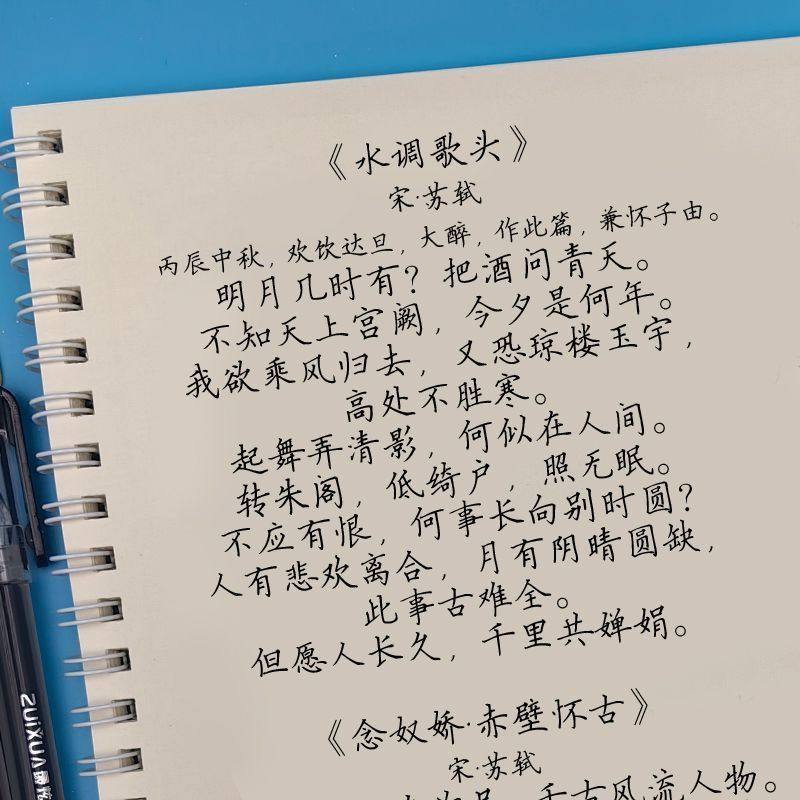 《水调歌头》
宋·苏轼
丙辰中秋，欢饮达旦，大醉，作此篇，兼怀子由。
明月几时有？把酒问青天。
不知天上宫阙，今夕是何年。
我欲乘风归去，又恐琼楼玉宇，
高处不胜寒。
起舞弄清影，何似在人间。
转朱阁，低绮户，照无眠。
不应有恨，何事长向别时圆？
人有悲欢离合，月有阴晴圆缺，
此事古难全。
但愿人长久，千里共婵娟。
《念奴娇·赤壁怀古》
宋·苏轼
千古风流人物。
ZUIXUA